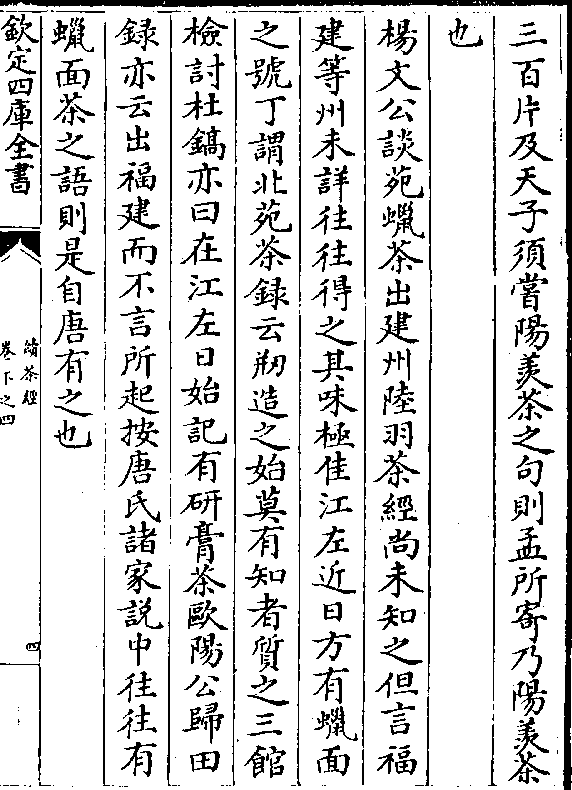 三百片及天子須嘗陽羨茶之句則孟所寄乃陽羨茶
也
楊文公談苑蠟茶出建州陸羽茶經尚未知之但言福
建等州未詳往往得之其味極佳江左近日方有蠟面
之號丁謂北苑茶録云剏造之始莫有知者質之三館
檢討杜鎬亦曰在江左日始記有研膏茶歐陽公歸田
録亦云出福建而不言所起按唐氏諸家説中往往有
蠟面茶之語則是自唐有之也
欽定四庫全書
續茶經
卷下之四
四